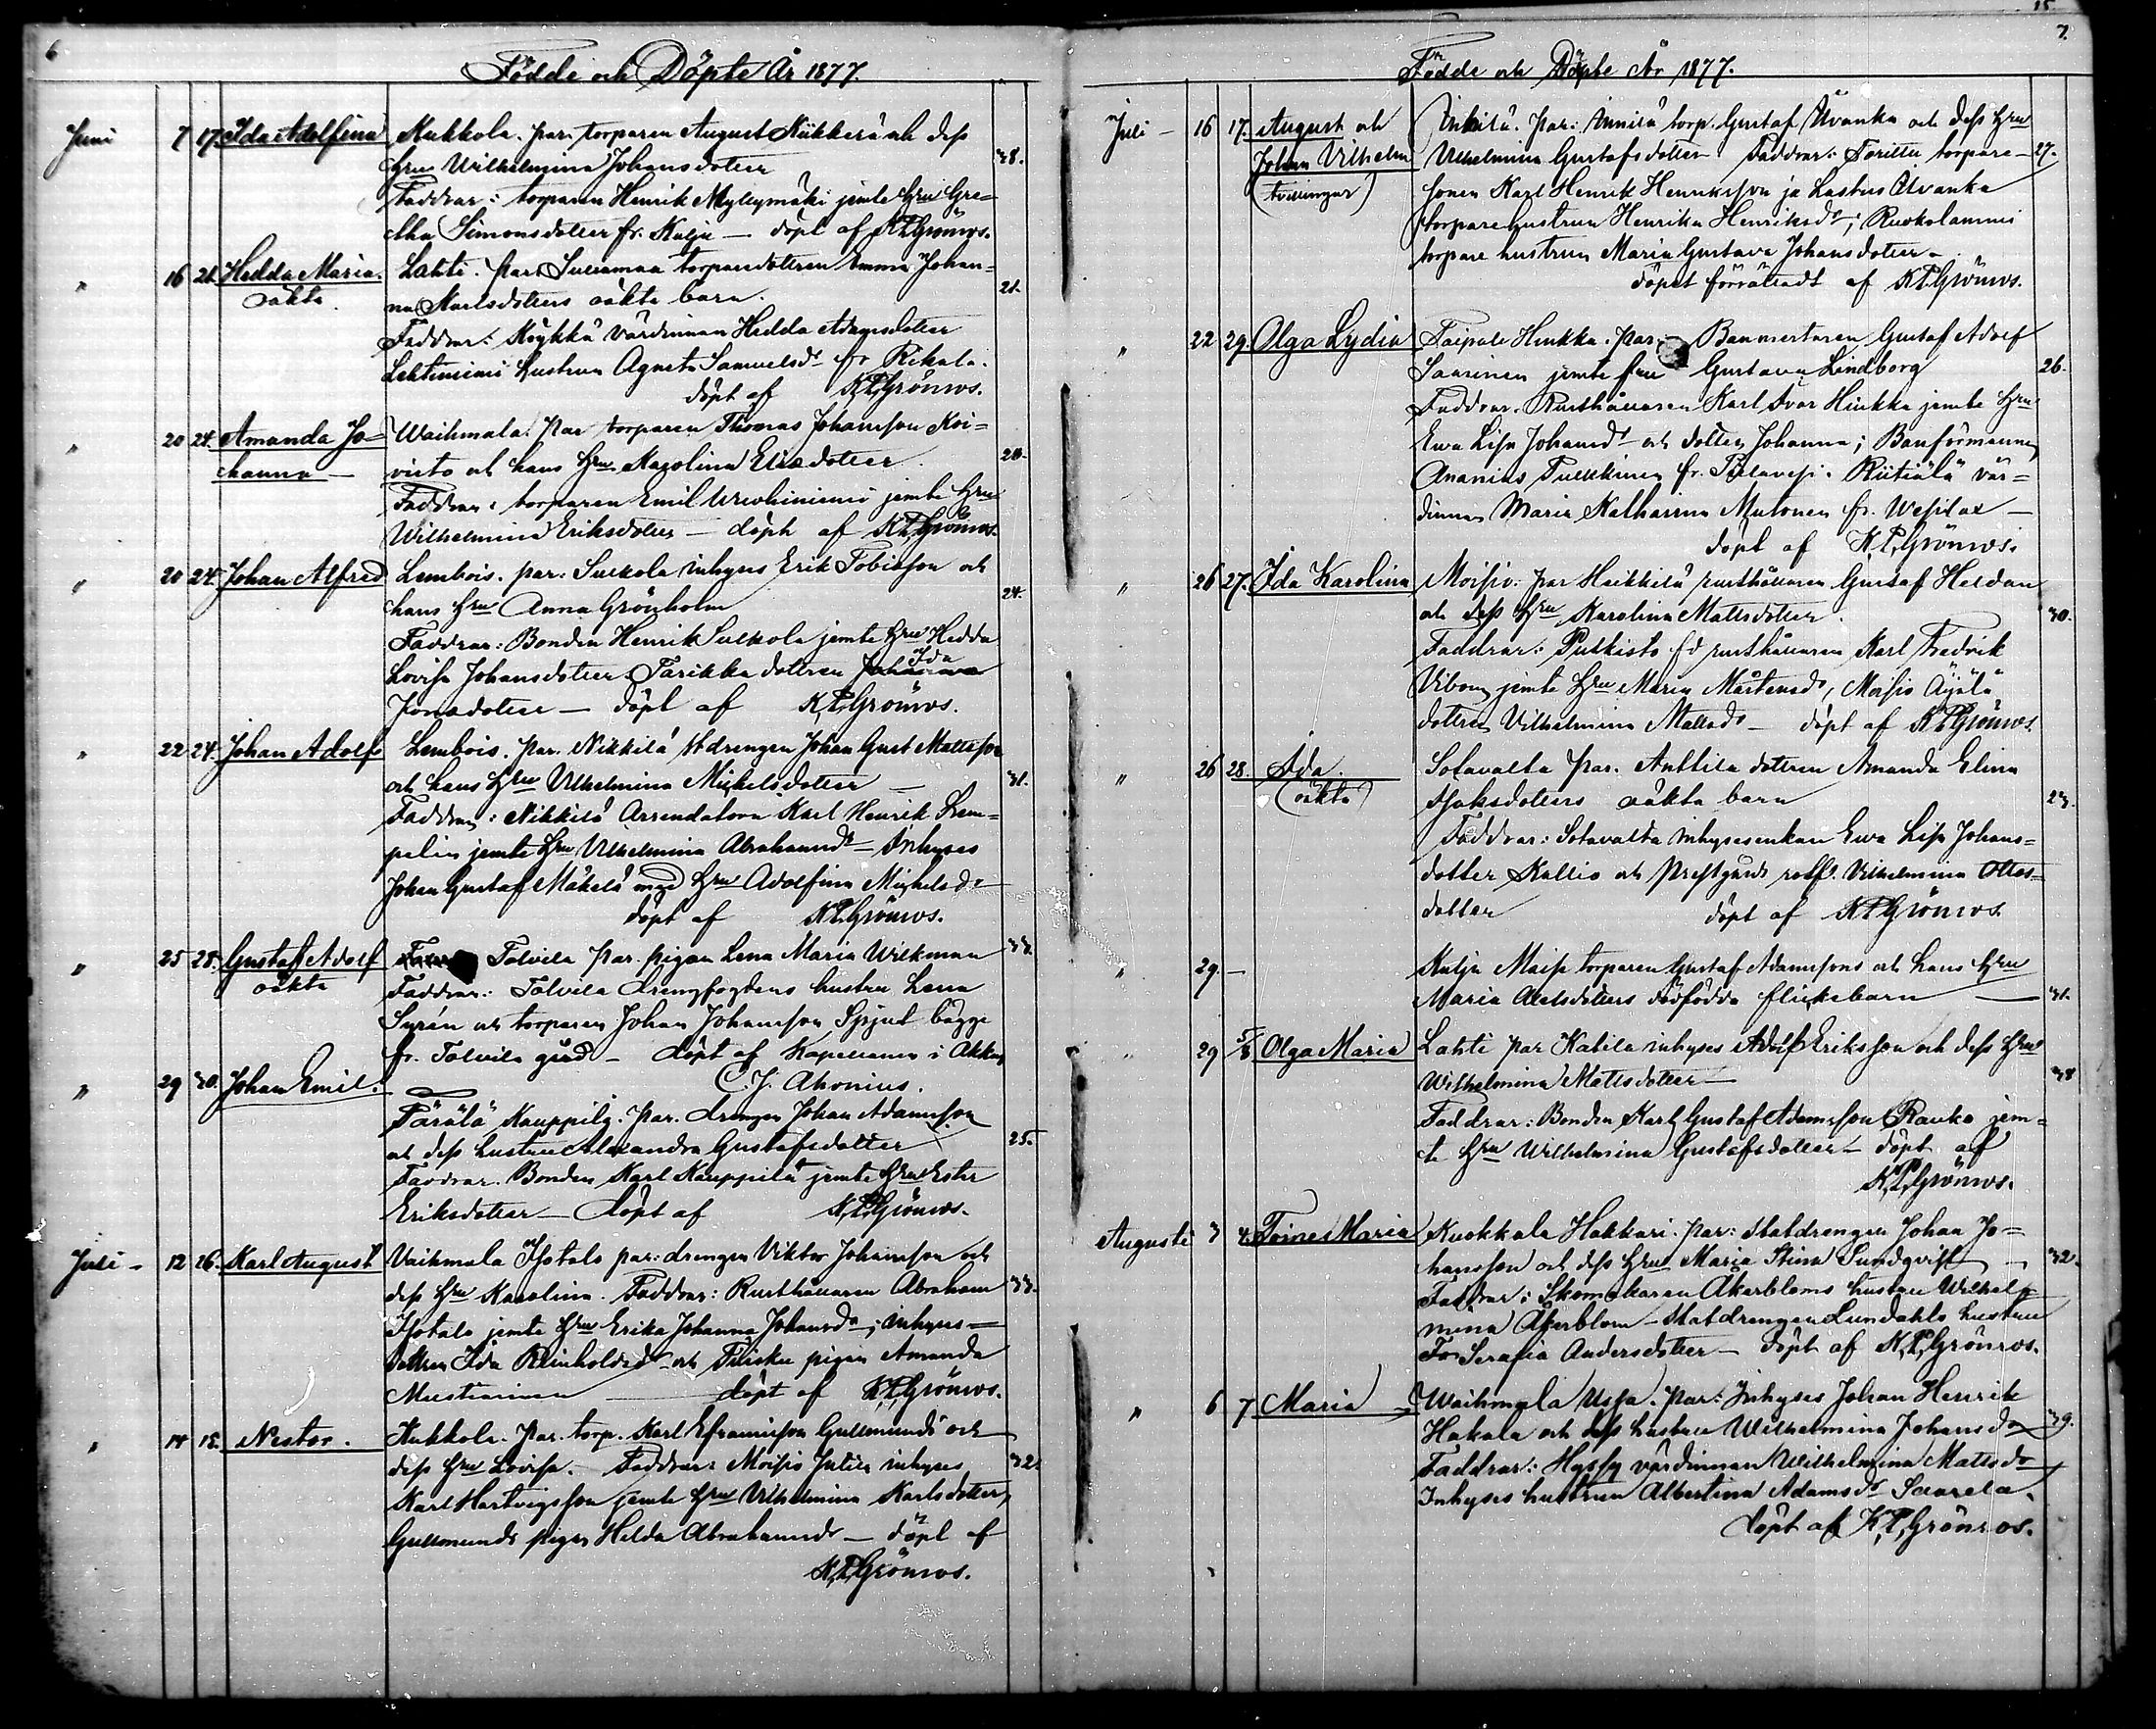 6
Födde och Döpte År 1877.
Juni 7 17. Ida Adolfina Kukkola. par. torparen August Kükkerä och dess
hru Wilhelmina Johansdotter 38.
Faddrar: torparen Henrik Myllymäki jemte hru Gre=
tha Simonsdotter fr. Kulju — döpt af K.P.Grönroos.
" 16 21. Hedda Maria. Lahti. par. torparedottren Emma Johan=
oäkta na Karlsdotters oäkta barn. 21.
Faddrar: värdinnan Hedda Adamsdotter
Lehtiniemi hustrun Agneta Samuelsd fr. Rikala.
döpt af K.P.Grönroos.
" 20 24. Amanda Jo= Waihmala. par torparen Thomas Johansson Koi=
hanna — visto och hans hru Karolina Eliædotter 20.
Faddrar: torparen Emil jemte hru
Wilhelmina Eriksdotter — döpt af K.P.Grönroos.
" 20 24. Johan Alfred Lembois. par: Suckola inhyses Erik Tobiasson och
hans hru Anna Grönholm 24.
Faddrar: Bonden Henrik Suckola jemte hru Hedda
Lovisa Johansdotter. Tarikka dottren Ida
Jonædotter — döpt af K.P.Grönroos.
" 22 24. Johan Adolf Lembois. par. Nikkilä st.drengen Johan Gust Mattsson
och hans hru Vilhelmina Mickelsdotter — 31.
Faddrar: Nikkilä Arrendatorn Karl Henrik Lem=
pelin jemte hru Vilhelmina Abrahamsd — Inhyses
Johan Gustaf Mäkelä med hru Adolfina Mickelsdr
döpt af K.P.Grönroos.
" 25 28. Gustaf Adolf Tolvila par. pigan Lena Maria Wilkman 33.
oäkta Faddrar: Tolvila drengfogdens hustru Lena
Syrén och torparen Johan Johansson Sjöjul bägge
fr. Tolvila gård — döpt af Kapellanen i Akkas
C.J. Ahonius.
" 29 30. Johan Emil. Säräla Kauppila. par. drengen Johan Adamsson
och dess hustru Alexandra Gustafsdotter 25.
Faddrar. Bonden Karl Kauppila jemte hru Ester
Eriksdotter — döpt af K.P.Grönroos.
Juli — 12 16. Karl August Vaihmala Isotalo par: drengen Viktor Johansson och
dess hru Karolina. Faddrar: Rusthållaren Abraham 33.
Isotalo jemte hru Erika Johanna Johansd; inhyses=
dottren Ida Reinholdsd och pigan Amanda
döpt af K.P.Grönroos.
" 14 15. Nestor. Kukkola. par. torp. Karl Efraimsson Gullmunds och
dess hru Lovisa. Faddrar: Moisio Jutila inhyses 32.
Karl Hartvigsson jemte hru Vilhelmina Karlsdotter,
Gullmunds pigan Hilda Abrahamsd — döpt af
K.P.Grönroos.
15.
7.
Födde och Döpte År 1877.
Juli — 16 17. August och par: torp. Gustaf Ilvanka och dess hru
Johan Vilhelm Vilhelmina Gustafsdotter. Faddrar: torpare= 27.
(tvillingar) sonen Karl Henrik Henriksson ja Lastus Alvanka
torparehustrun Henrika Henriksdr; Ruokolammi
torpare hustrun Maria Gustava Johansdotter —
döpet förrättadt af K.P.Grönroos.
" 22 29. Olga Lydia Taipale Hinkka. par: Banmestaren Gustaf Adolf
Saarinen jemte fru Gustava Lindborg 26.
Faddrar. Rusthållaren Karl Ivar Hinkka jemte hru
Ewa Lisa Johansd och dotter Johanna; Banförmannen
Ananias Tulkkinen fr. Riitiälä vär=
dinnan Maria Katharina Mutonen fr. Wesilax —
döpt af K.P.Grönroos.
" 26 27. Ida Karolina Moisio. par Heikkilä rusthållaren Gustaf Heldan
och dess hru Karolina Mattsdotter. 30.
Faddrar: Putkisto fd rusthållaren Karl Fredrik
Vibom jemte hru Maria Mårtensd, Moisio Äijälä
dottren Vilhelmina Mattsdr — döpt af K.P.Grönroos.
" 26 28. Ida. Sotavalta par. Anttila dottren Amanda Elina
(oäkta) Isaksdotters oäkta barn 23.
Faddrar: Sotavalta inhysesenkan Ewa Lisa Johans=
dotter Kallio och Prestgårds rotf. Vilhelmina Ottos=
dotter döpt af K.P.Grönroos.
" 29. — Kulju Moisio torparen Gustaf Adamssons och hans hru
Maria Axelsdotters dödfödda flickebarn — 31.
" 29 5/8 Olga Maria Lahti par Katila inhyses Adolf Eriksson och dess hru
Wilhelmina Mattsdotter — 38
Faddrar: Bonden Karl Gustaf Adamsson Rauko jem=
te hru Wilhelmina Gustafsdotter — döpt af
K.P.Grönroos.
Augusti 3 4. Toine Maria Kuokkala Hakkari. par: statdrengen Johan Jo=
hansson och dess hru Maria Stina Sundqvist — 32.
Faddrar: Skomakaren Åkerbloms hustru Wilhel=
mina Åkerblom — statdrengen Lundahls hustru
Serafia Andersdotter — döpt af K.P.Grönroos.
" 6 7 Maria Waihmala Ussa. par: Inhyses Johan Henrik
Hakala och dess hustru Wilhelmina Johansdr 39.
Faddrar: Hyssy värdinnan Wilhelmina Mattsdr
Inhyses hustrun Albertina Adamsdr Saarela.
döpt af K.P.Grönroos.